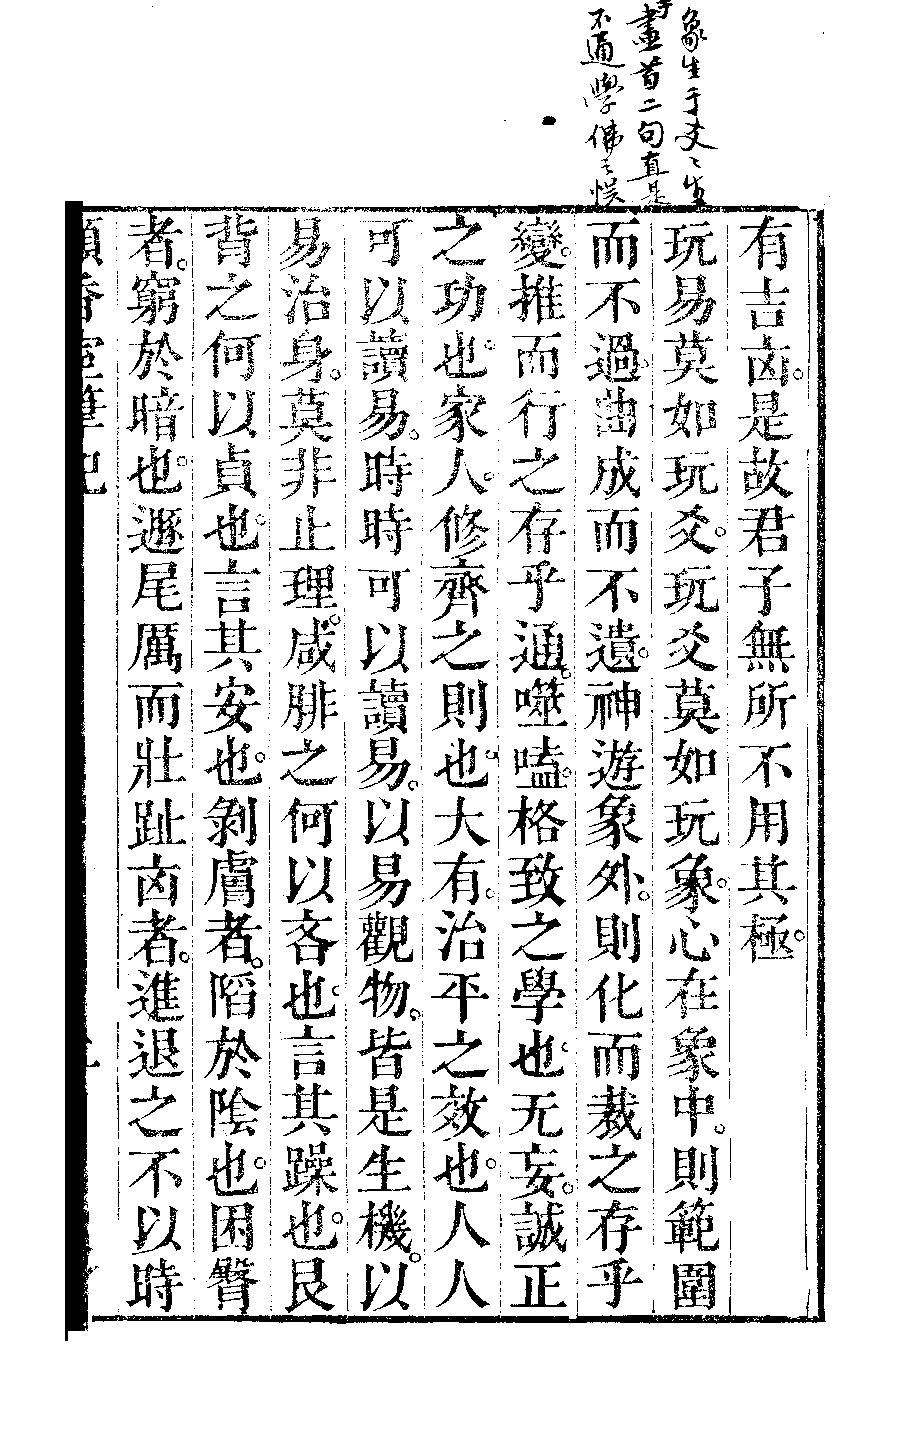 象生于爻〻生
于畫首二句直是
不通學佛之悞
有吉凶。是故君子無所不用其極。
玩易莫如玩爻。玩爻莫如玩象。心在象中。則範圍
而不過。曲成而不遺。神遊象外。則化而裁之存乎
變。推而行之存乎通。噬嗑。格致之學也。无妄。誠正
之功也。家人。修齊之則也。大有。治平之效也。人人
可以讀易。時時可以讀易。以易觀物。皆是生機。以
易治身。莫非止理。咸腓之何以吝也。言其躁也。艮
背之何以貞也。言其安也。剝膚者。陷於陰也。困臀
者。窮於暗也。遯尾厲而壯趾凶者。進退之不以時